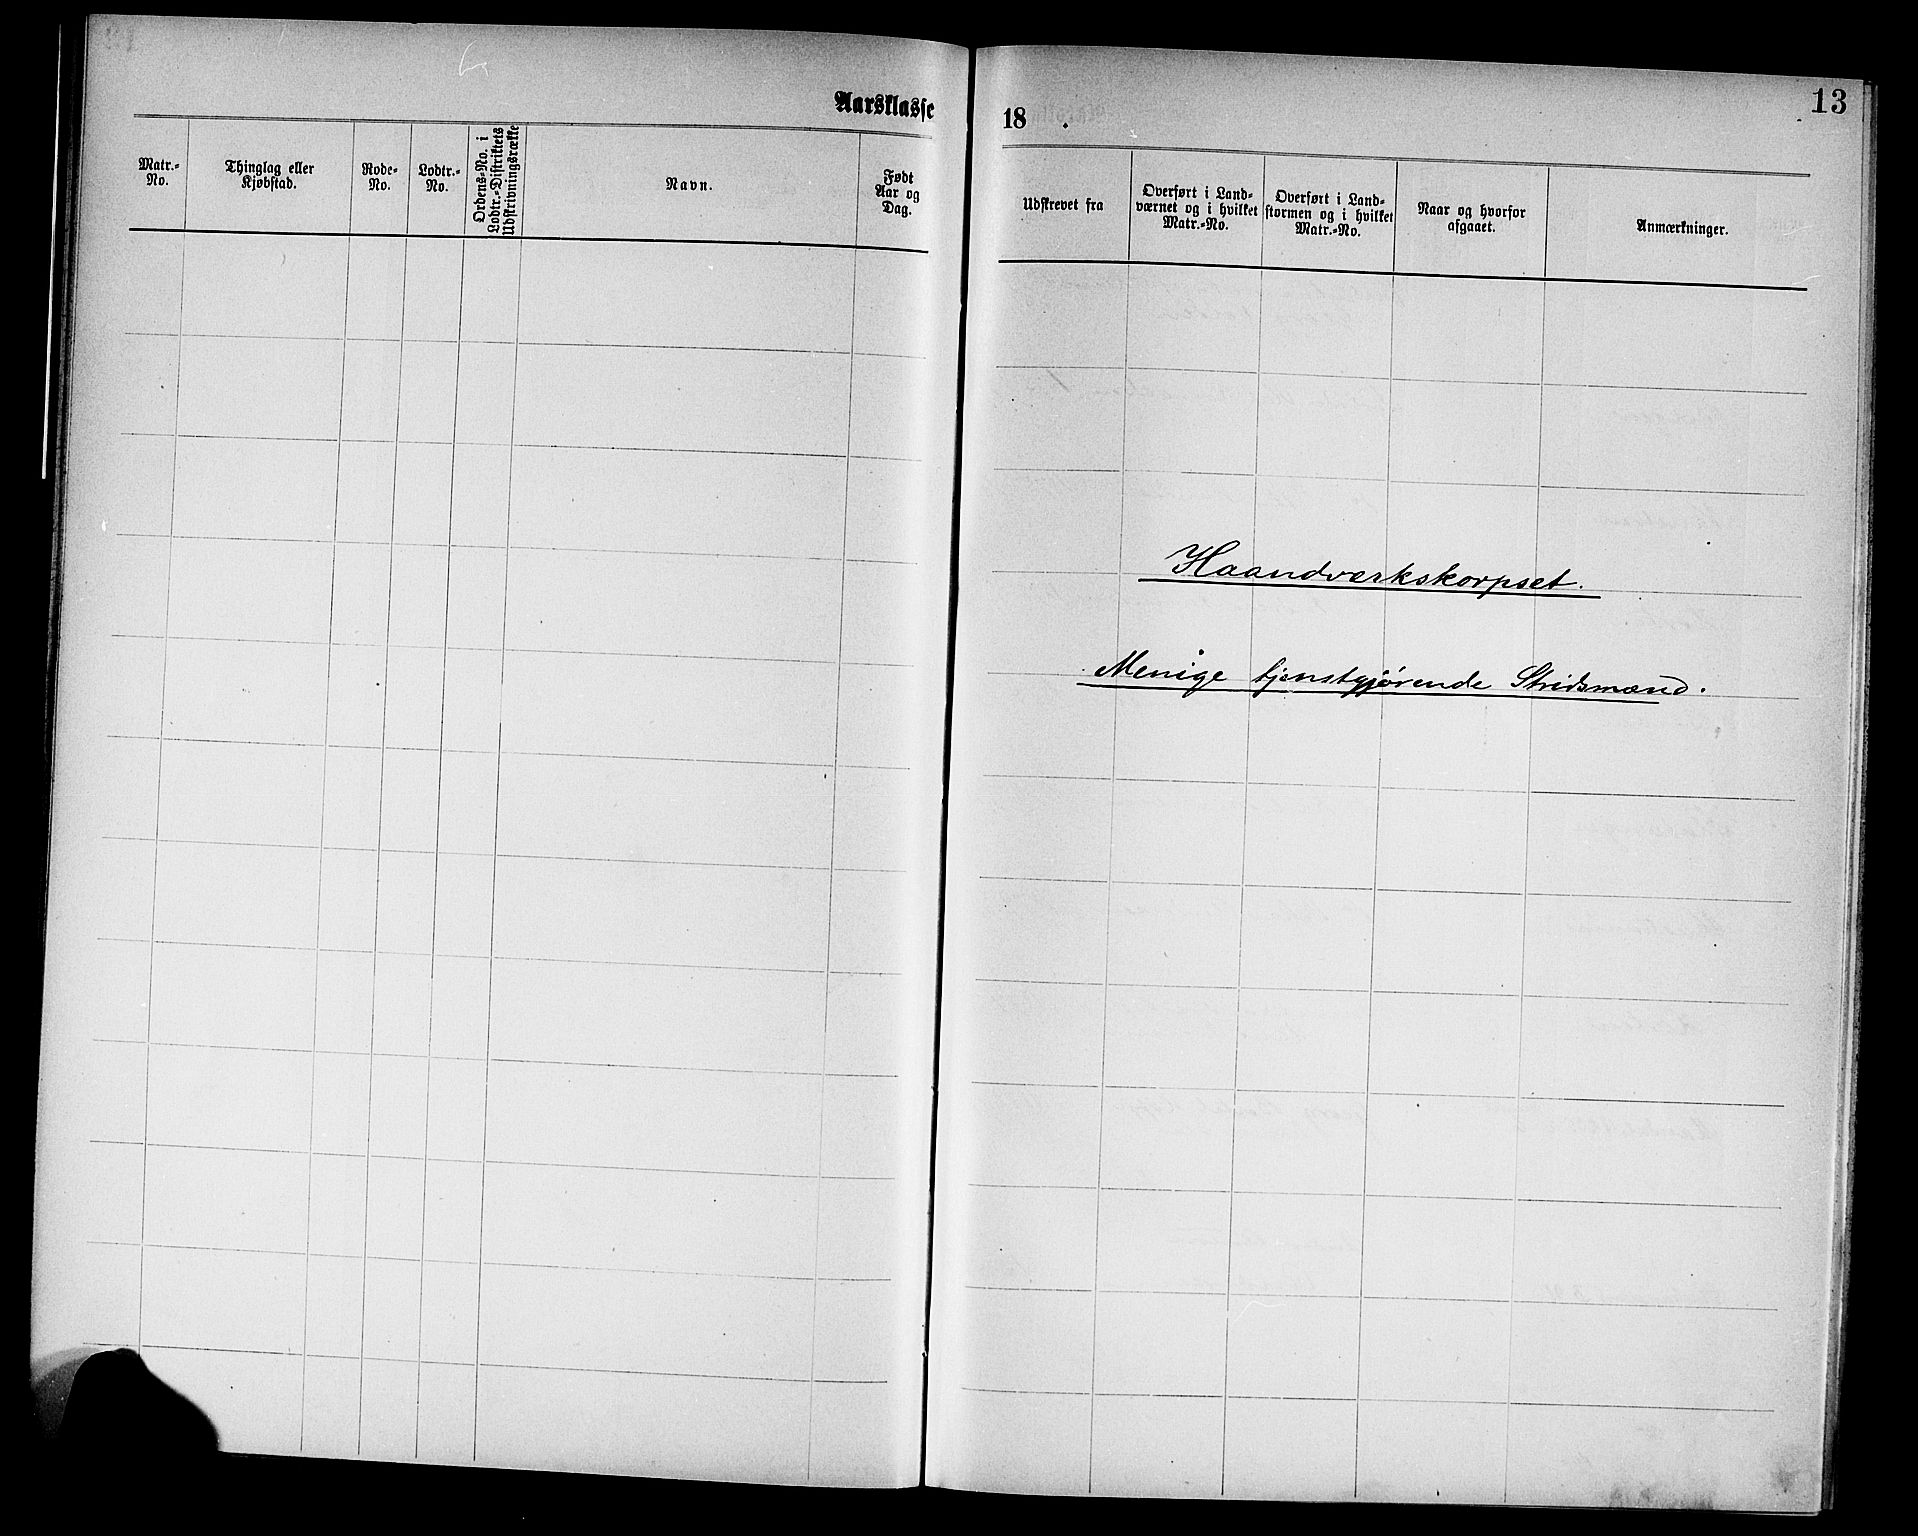 13
Aarsklasse 18 .
Matr.-
No.
Thinglag eller
Kjøbstad.
Rode-
No.
Lodtr.-
No.
Ordens-No. i
Lodtr.-Distriktets
Udskrivningsrække
Navn.
Født
Aar og
Dag.
Udskrevet fra
Overført i Land-
værnet og i hvilket
Matr.-No.
Overført i Land-
stormen og i hvilket
Matr.-No.
Naar og hvorfor
afgaaet.
Anmærkninger.
Haandværkskorpset.
Menige tjenstgjørende Stridsmænd.